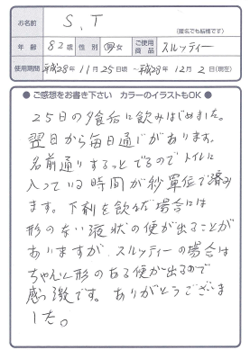 お名前 S、T
(匿名でも結構です)
年齢 82歳 性別 男・女 ご使用商品 スルッティー
使用期間 平成28年11月25日頃 ～ 平成28年12月2日(現在)
● ご感想をお書き下さい カラーのイラストもOK ●
25日の夕食后に飲みはじめました。
翌日から毎日通じがあります。
名前通りするっとでるのでトイレに
入っている時間が秒単位で済み
ます。下剤を飲んだ場合には
形のない液状の便が出ることが
ありますが、スルッティーの場合は
ちゃんと形のある便が出るので
感激です。ありがとうございま
した。